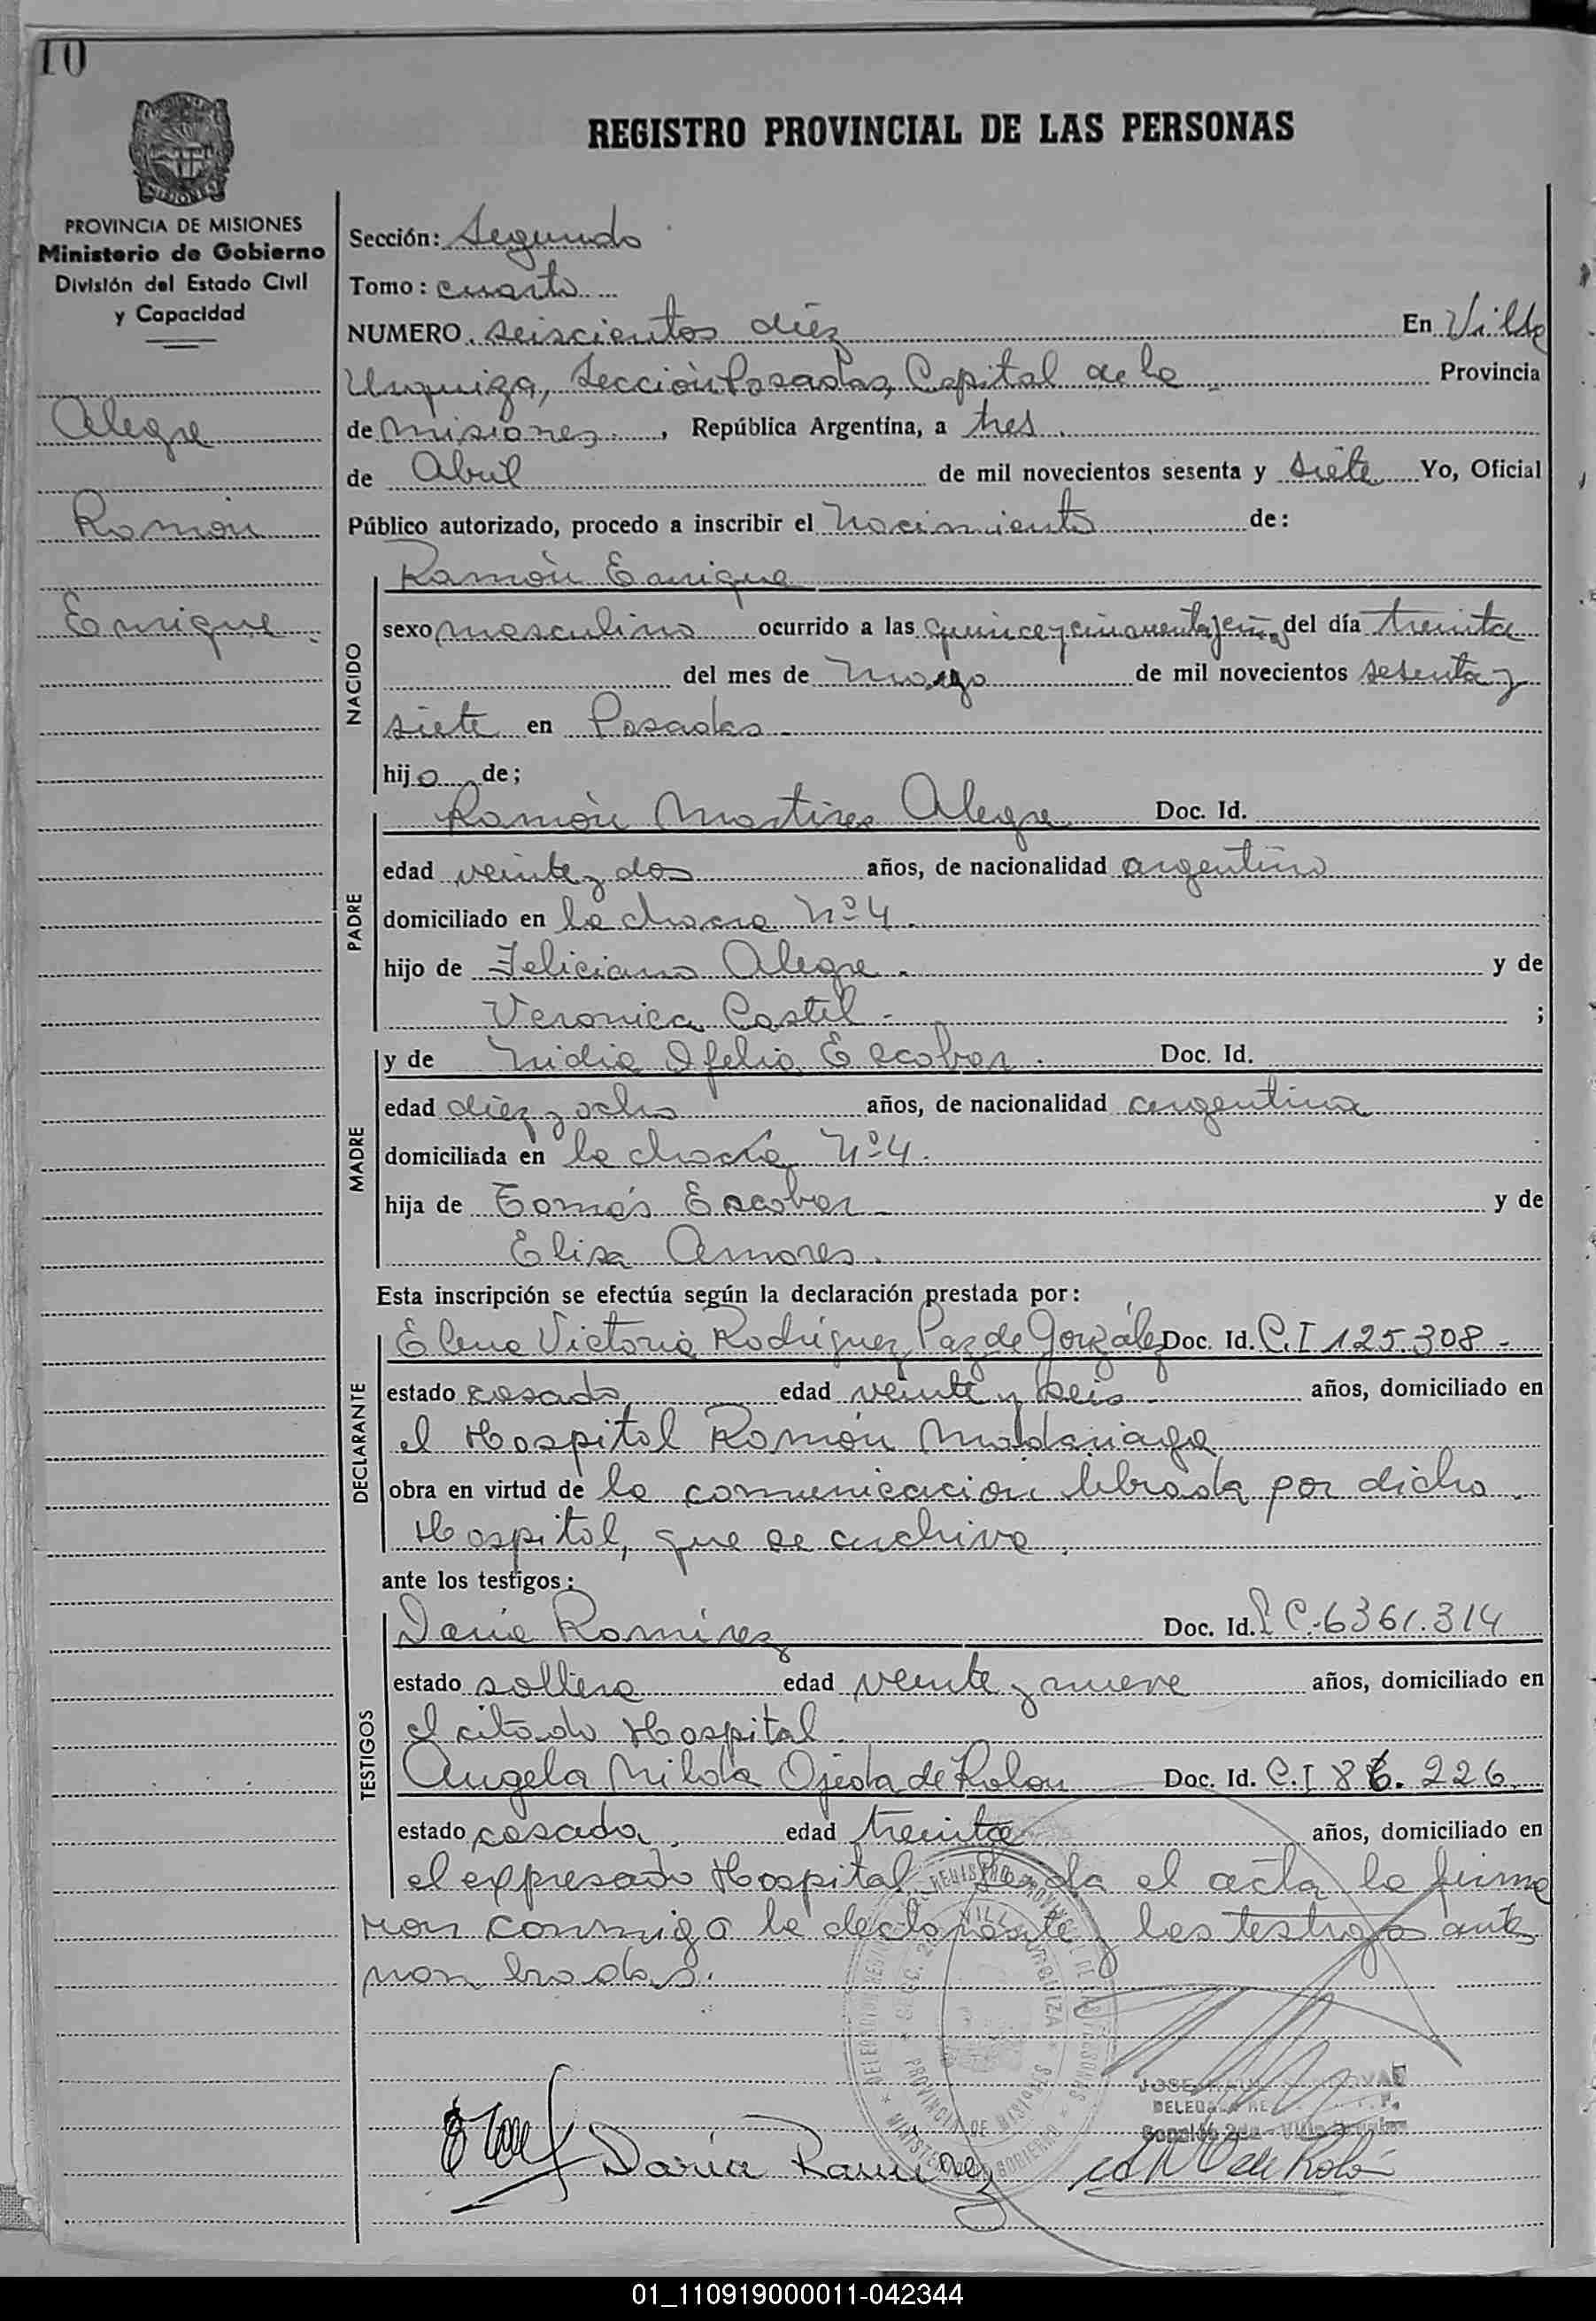 10
REGISTRO PROVINCIAL DE LAS PERSONAS
PROVINCIA DE MISIONES
Ministerio de Gobierno
División del Estado Civil
y Capacidad
Alegre
Ramón
Enrique
Sección: Segunda
Tomo: cuarto
NUMERO. seiscientos diez En Villa
Urquiza, Sección Posadas, Capital de la Provincia
de Misiones, República Argentina, a tres
de Abril de mil novecientos sesenta y siete Yo, Oficial
Público autorizado, procedo a inscribir el Nacimiento de:
NACIDO
Ramón Enrique
sexo masculino ocurrido a las quince y cincuenta y cinco del día treinta
del mes de Marzo de mil novecientos sesenta y
siete en Posadas
hijo de;
PADRE
Ramón Martires Alegre Doc. Id.
edad veinte y dos años, de nacionalidad argentino
domiciliado en la chacra Nº 4.
hijo de Feliciano Alegre. y de
Veronica Castel ;
MADRE
y de Nidia Ofelia Escobar. Doc. Id.
edad diez y ocho años, de nacionalidad argentina
domiciliada en la chacra Nº 4.
hija de Tomás Escobar y de
Elisa Amores.
Esta inscripción se efectúa según la declaración prestada por:
DECLARANTE
Elena Victoria Rodríguez Paz de González Doc. Id. C.I 125.308
estado casada edad veinte y seis años, domiciliado en
el Hospital Ramón Madariaga
obra en virtud de la comunicacion librada por dicho
Hospital, que se archiva.
ante los testigos:
TESTIGOS
Daria Ramirez Doc. Id. L C.-6361.314
estado soltera edad veinte y nueve años, domiciliado en
el citado Hospital.
Angela Nilda Ojeda de Rolon Doc. Id. C.I 86.226
estado casada. edad treinta años, domiciliado en
el expresado Hospital. Leida el acta la firma
ron conmigo la declarante y los testigos antes
nombrados.
VILLA URQUIZA
PROVINCIA DE MISIONES
MINISTERIO DE GOBIERNO
Daria Ramirez
de Roló
01_110919000011-042344